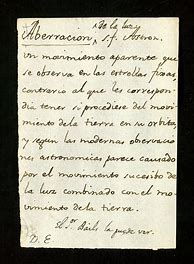 de la luz
Aberracion, s.f. Astron.
Un movimiento aparente que
se observa en las estrellas fixas,
contrario al que les correspon
dia tener si procediese del movi
miento de la tierra en su orbita,
y segun las modernas observacio
nes astronomicas parece causado
por el movimiento sucesibo de
la luz combinado con el mo
vimiento de la tierra.
El Sor Bails la puede ver.
D. E